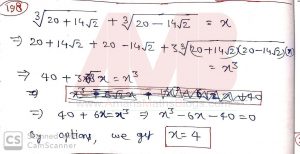 198
∛(20+14√2) + ∛(20-14√2) = x
⇒ 20+14√2 + 20-14√2 + 3∛((20+14√2)(20-14√2)) x = x³
⇒ 40 + 3∛ x = x³
⇒ 40+6x=x³ ⇒ x³-6x-40=0
By options, we get x=4
CS CamScanner